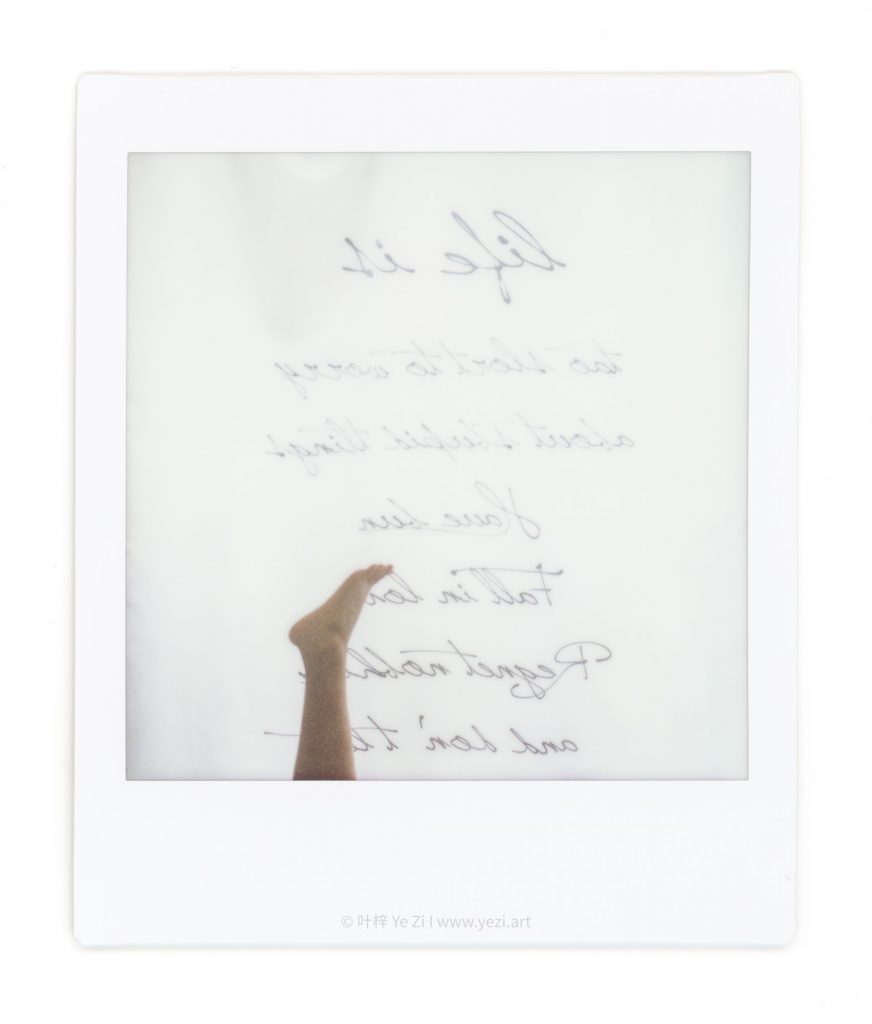 life is
too short to worry
about stupid things
Have fun
Fall in
Regret
and don't
© 叶梓 Ye Zi I www.yezi.art